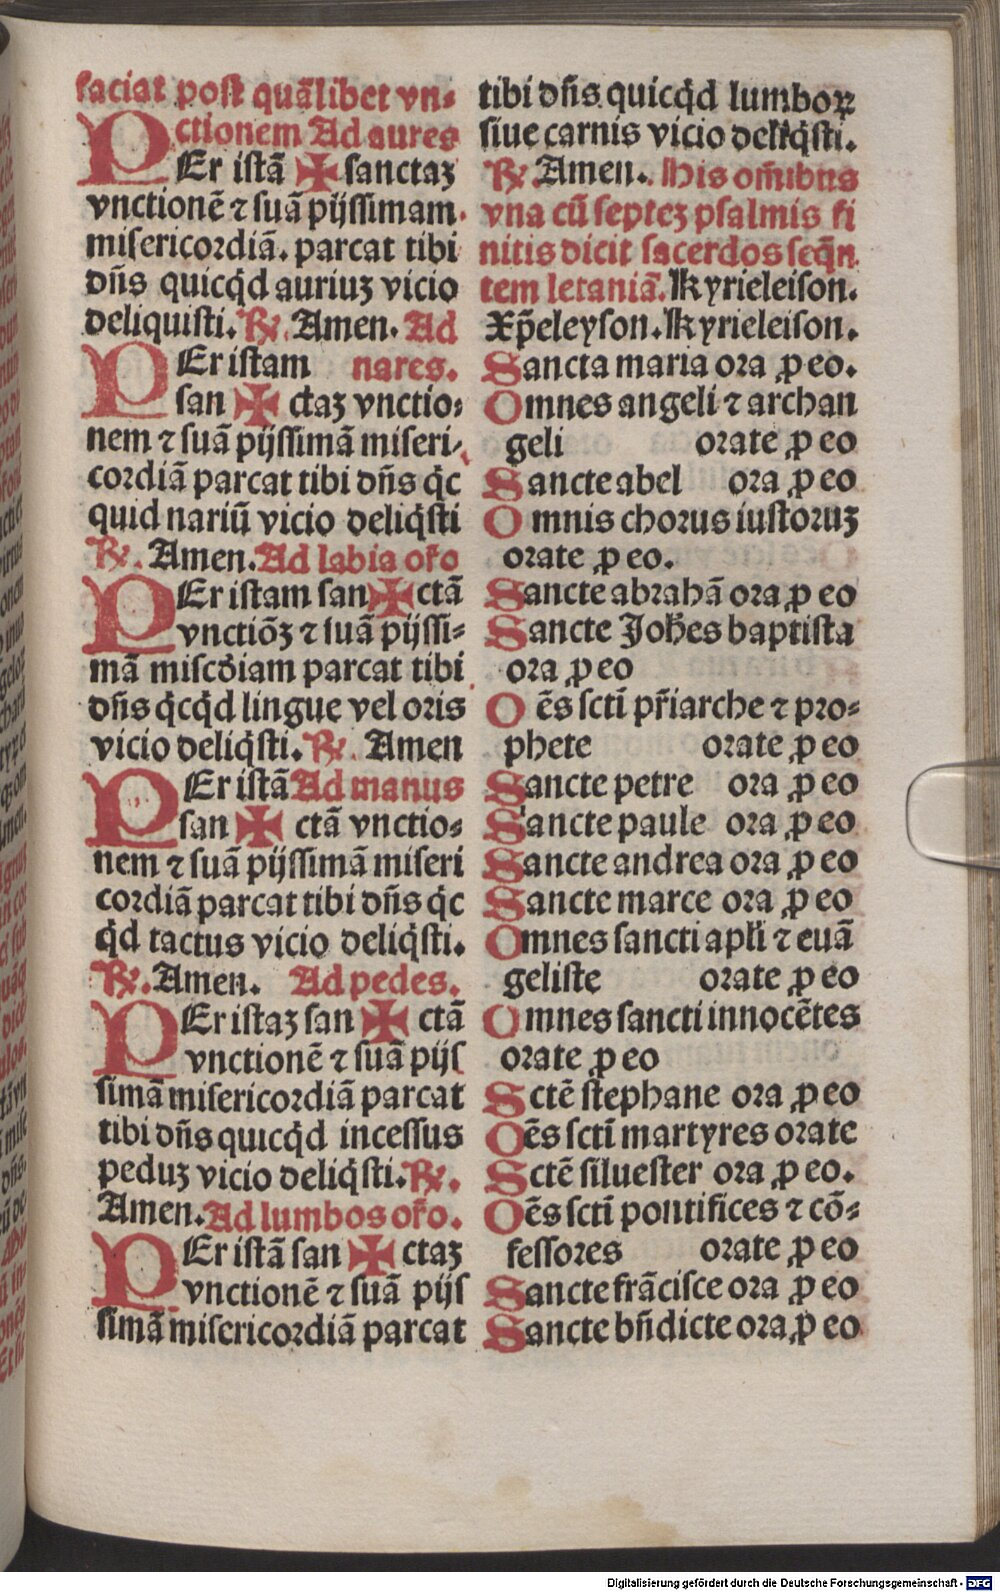 faciat post quãlibet vn-
ctionem Ad aures
PEr istã ✠ sanctaȝ
vnctionẽ ⁊ suã pijssimam
misericordiã. parcat tibi
dñs quicq̇d auriuȝ vicio
deliquisti. ℟. Amen. Ad
PEr istam nares.
san ✠ ctaȝ vnctio-
nem ⁊ suã pijssimã miseri-
cordiã parcat tibi dñs q̇c
quid nariũ vicio deliq̇sti
℟. Amen. Ad labia oro
PEr istam san ✠ ctã
vnctiõȝ ⁊ suã pijssi-
mã miscdiam parcat tibi
dñs q̇cq̇d lingue vel oris
vicio deliq̇sti. ℟. Amen
PEr istã Ad manus
san ✠ ctã vnctio-
nem ⁊ suã pijssimã miseri
cordiã parcat tibi dñs q̇c
q̇d tactus vicio deliq̇sti.
℟. Amen. Ad pedes.
PEr istaȝ san ✠ ctã
vnctionẽ ⁊ suã pijs
simã misericordiã parcat
tibi dñs quicq̇d incessus
peduȝ vicio deliq̇sti. ℟.
Amen. Ad lumbos oro.
PEr istã san ✠ ctaȝ
vnctionẽ ⁊ suã pijs
simã misericordiã parcat
tibi dñs quicq̇d lumboꝝ
siue carnis vicio deliq̇sti.
℟. Amen. His om̃ibus
vna cũ septeȝ psalmis fi
nitis dicit sacerdos seq̃n
tem letaniã. Kyrieleison.
Xp̃eleyson. Kyrieleison.
Sancta maria ora ꝓ eo.
Omnes angeli ⁊ archan
geli orate ꝓ eo
Sancte abel ora ꝓ eo
Omnis chorus iustoruȝ
orate ꝓ eo.
Sancte abrahã ora ꝓ eo
Sancte Johẽs baptista
ora ꝓ eo
Oẽs sctĩ pr̃iarche ⁊ pro-
phete orate ꝓ eo
Sancte petre ora ꝓ eo
Sancte paule ora ꝓ eo
Sancte andrea ora ꝓ eo
Sancte marce ora ꝓ eo
Omnes sancti apłi ⁊ euã
geliste orate ꝓ eo
Omnes sancti innocẽtes
orate ꝓ eo
Sctẽ stephane ora ꝓ eo
Oẽs sctĩ martyres orate
Sctẽ siluester ora ꝓ eo.
Oẽs sctĩ pontifices ⁊ cõ-
fessores orate ꝓ eo
Sancte frãcisce ora ꝓ eo
Sancte bñdicte ora ꝓ eo
Digitalisierung gefördert durch die Deutsche Forschungsgemeinschaft - DFG